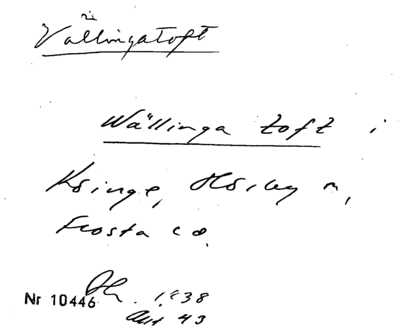 Vällingatoft
Wällinga toft i
Kninge, Hörby n,
Frosta co.
Nr 10446 1838
Akt 43